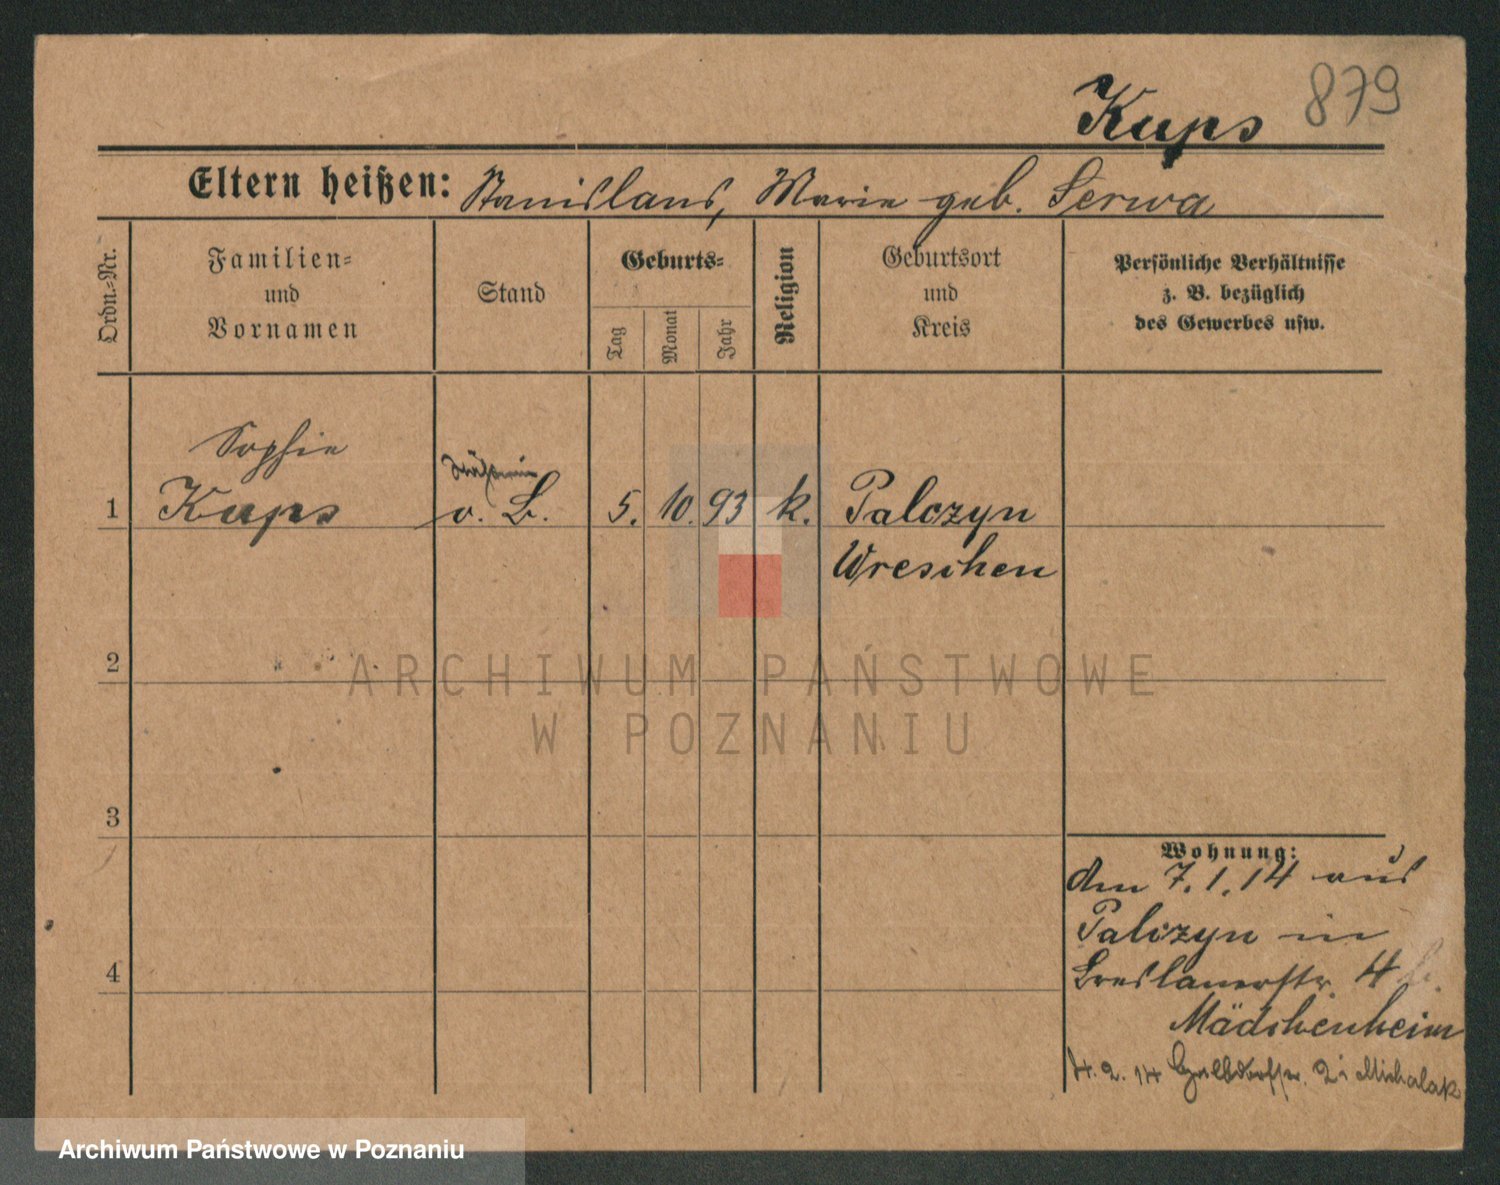 Kups 879
Eltern heißen: Stanislaus, Marie geb. Serwa
Ordn.-Nr.
Familien-
und
Vornamen
Stand
Geburts-
Tag
Monat
Jahr
Religion
Geburtsort
und
Kreis
Persönliche Verhältnisse
z. B. bezüglich
des Gewerbes usw.
Sophie
1 Kups o. B. 5. 10. 93 k. Palczyn
Wreschen
2
3
4
Wohnung:
den 7. 1. 14 aus
Palczyn in
Breslauerstr. 4
Mädchenheim
4. 2. 14 2 i Michalak
ARCHIWUM PAŃSTWOWE
W POZNANIU
Archiwum Państwowe w Poznaniu